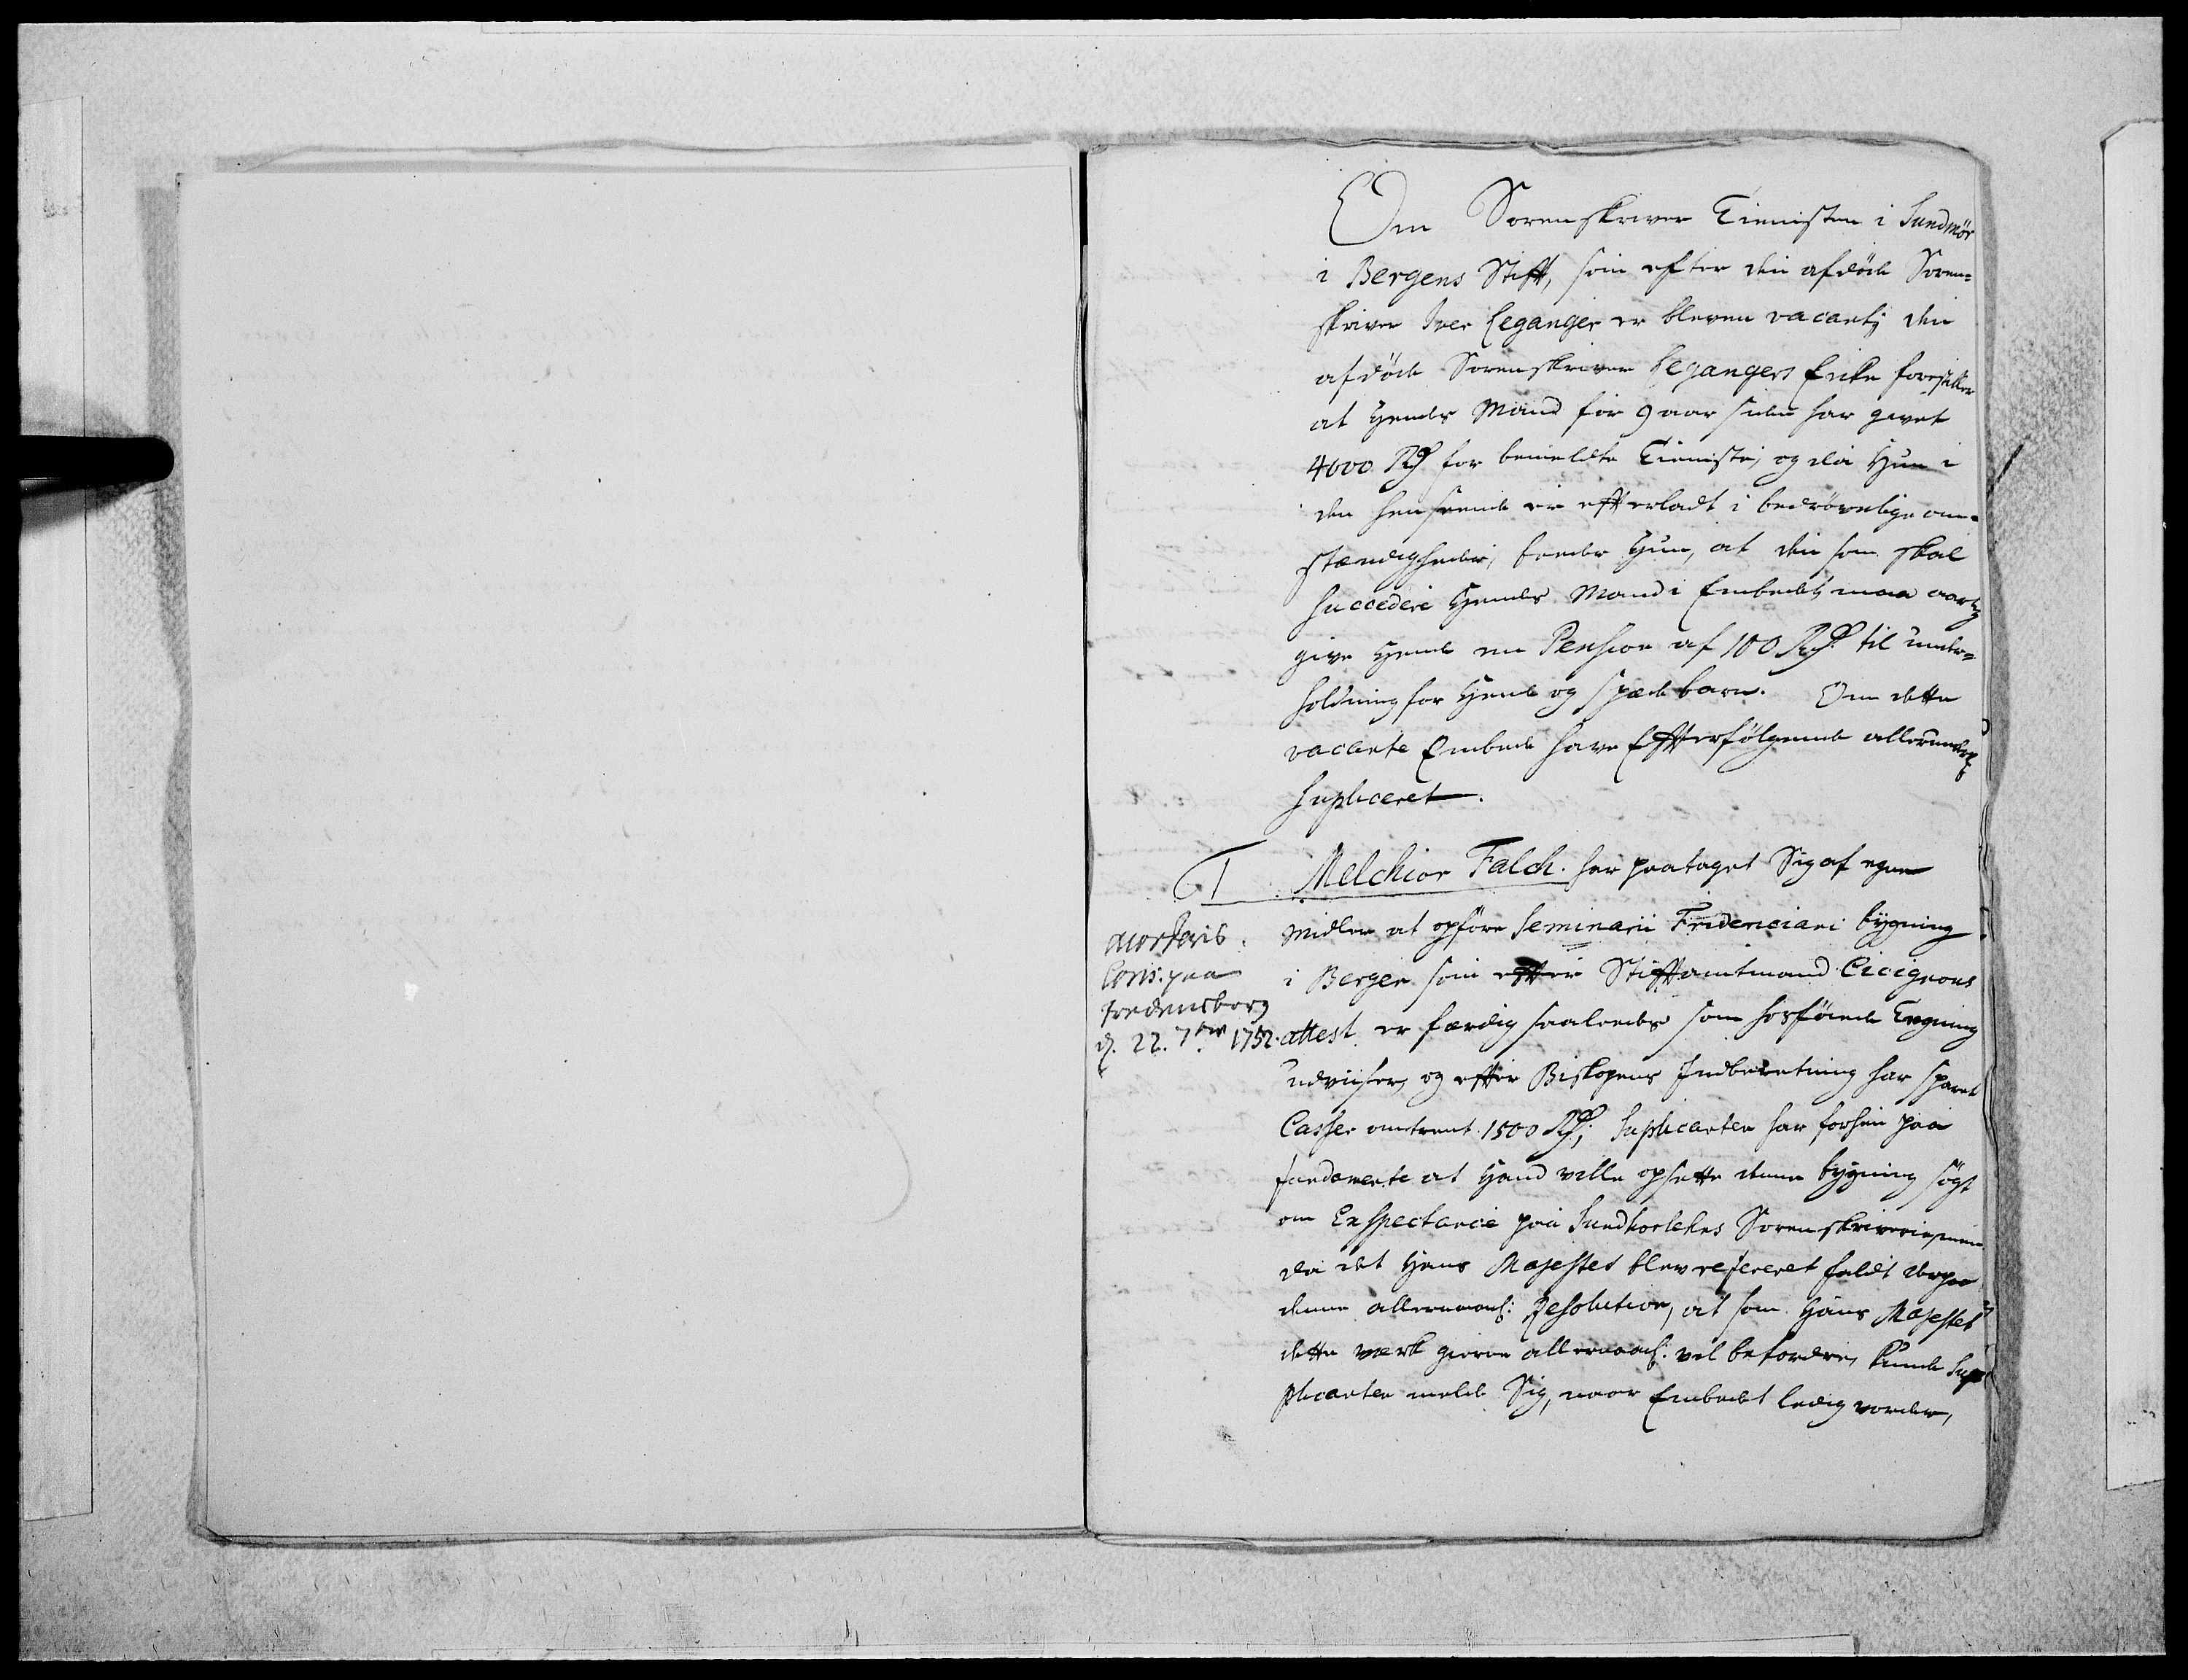 Om Sorenskriver Tienisten i Sundmör
i Bergens Stift, som efter den afdöde Soren-
skriver Iver Leganger er bleven vacant; den
afdöde Sorenskriver Legangers Enke forestiller
at hendes Mand for 9 aar siden har givet
4000 Rd for bemeldte Tieniste, og da Hun i
den henseende er efterladt i bedrövelige om-
stændigheder, beeder Hun, at den som skal
succedere Hendes Mand i Embedet, maa aarlig
give Hende en Pension af 100 Rd. til under-
holdning for Hende og spæde barn. Om dette
vacante Embede have Efterfölgende allerund.
supliceret.
1 Melchior Falch. har paataget Sig af egne
Midler at opföre Seminarii Fridericiani bygning
i Bergen som efter Stiftamtmand Cicignons
attest er færdig saaledes som hosföiede Tegning
udviiser, og efter Biskopens Indberetning har sparet
Casser omtrent 1500 Rd; Suplicanten har forhen paa
fundamente at Hand ville opsette denne bygning sögt
om Exspectance paa Sundhorlehns Sorenskriverie, men
da det Hans Majestet blev refereret faldt derpaa
denne allernaad: Resolution, at som Hans Majestet
dette værk gierne allernaad: vil befordre, kunde Sup-
plicanten melde Sig, naar Embedet ledig vorder,
Cons: paa
Fredensborg
d. 22. 7br 1752.